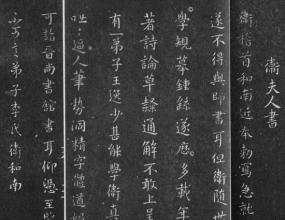 衛夫人書
衛稽首和南近奉勅寫急就
遂不得與師書耳但衛隨世
學規摹鍾繇遂歷多載年
著詩論草隸通解不敢上呈
有一弟子王逸少甚能學衛真
咄〻逼人筆勢洞精字體遒媚
可詣晉尚書館書耳仰憑至
不可言弟子李氏衛和南